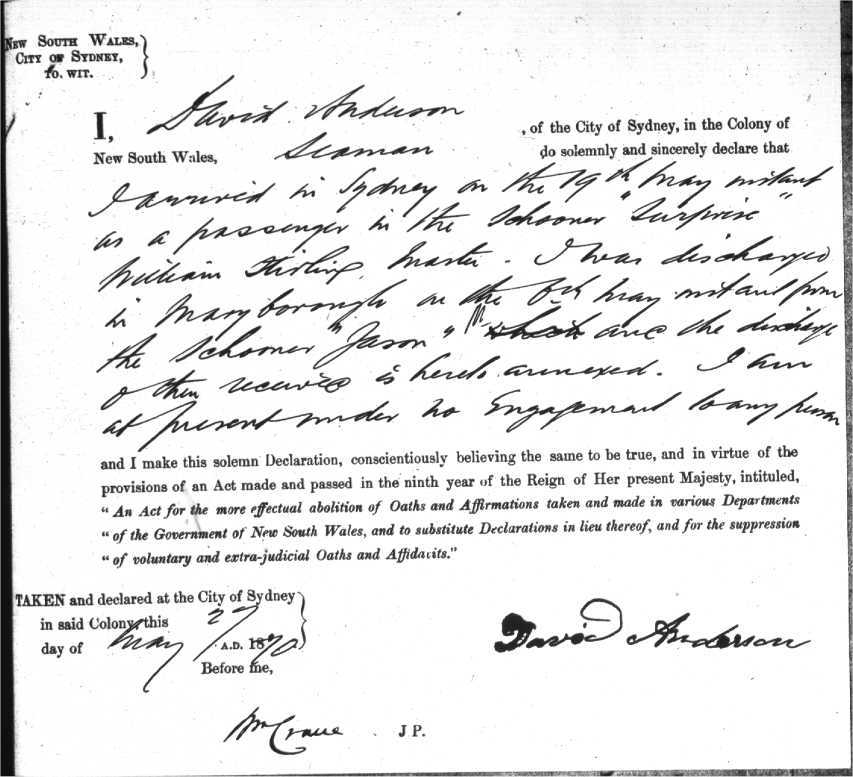 NEW SOUTH WALES,
CITY OF SYDNEY,
TO. WIT.
I, David Anderson , of the City of Sydney, in the Colony of
New South Wales, Seaman do solemnly and sincerely declare that
I arrived in Sydney on the 19th May instant
as a passenger in the Schooner "Surprise"
William Stirling, Master. I was discharged
in Maryborough on the 6th May instant from
the Schooner "Jason" which and the discharge
then received is hereto annexed. I am
at present under no Engagement to any person
and I make this solemn Declaration, conscientiously believing the same to be true, and in virtue of the
provisions of an Act made and passed in the ninth year of the Reign of Her present Majesty, intituled,
" An Act for the more effectual abolition of Oaths and Affirmations taken and made in various Departments
" of the Government of New South Wales, and to substitute Declarations in lieu thereof, and for the suppression
" of voluntary and extra-judicial Oaths and Affidavits."
TAKEN and declared at the City of Sydney
in said Colony, this 27
day of May A.D. 1870
Before me,
David Anderson
Wm Crane J P.